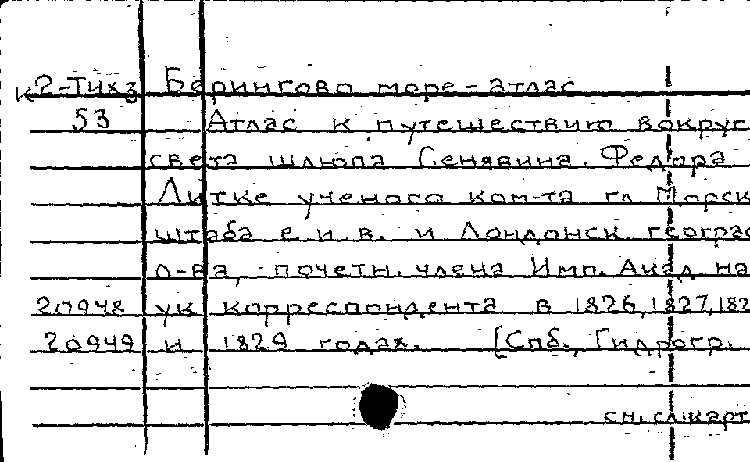 К2-Тихз Берингово море - атлас
53 Атлас к путешествию вокруг
света шлюпа Сенявина. Федора
Литке ученого ком-та гл. Морск
штаба е.и.в. и Лондонск геогра
о-ва, почетн. члена Имп. Акад. на
20948 ук корреспондента в 1826, 1827, 182
20949 и 1829 годах. [Спб., Гидрогр.
см. сл. карт